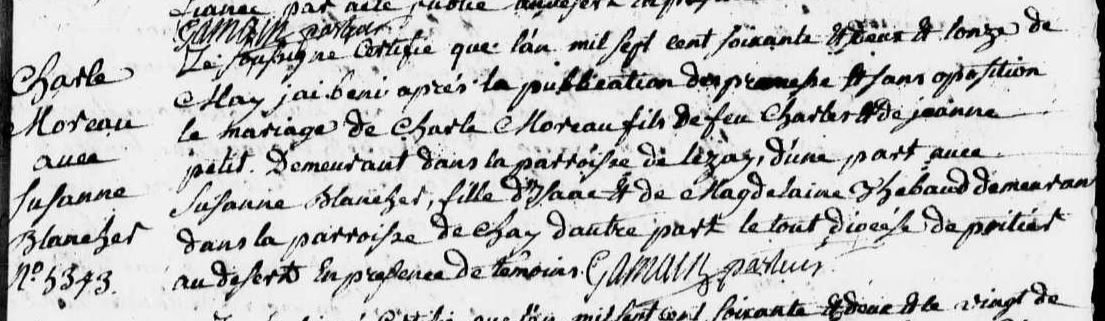 Gamain pasteur
Charle
Moreau
avec
Susanne
Blancher
N° 5343.
Le soussigné Certifie que l'an mil sept cent soixante & deux & l'onze de
May jai beni aprés la publication des promesse & sans oposition
le mariage de Charle Moreau fils de feu Charles & de jeanne
petit. Demeurant dans la parroisse de lezay, d'une part avec
Susanne Blancher, fille d'Isaac & de Magdelaine Thebaud demeuran
dans la parroisse de Chay d'autre part le tout diocése de poitiers
au desert En presence de témoins. Gamain pasteur.
mil sept cent soixante & deux & le vingt de